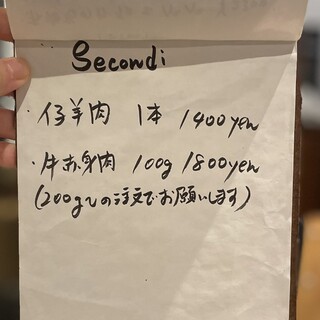 Secondi
・仔羊肉 1本 1400yen
・牛赤身肉 100g 1800yen
(200g〜の注文でお願いします)